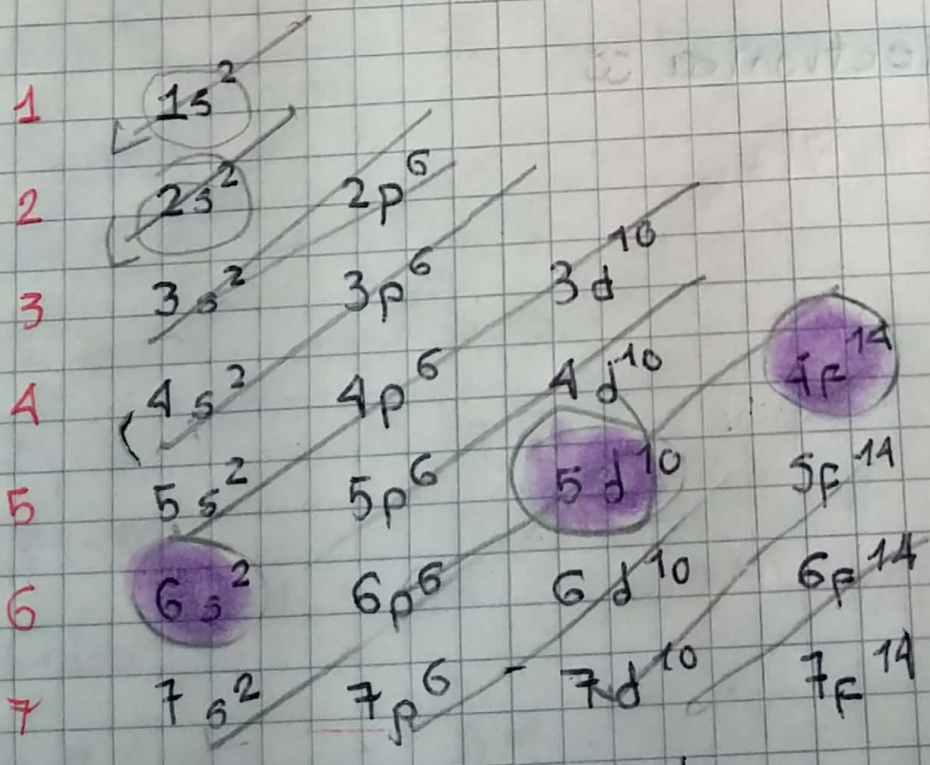 1 1s²
2 2s² 2p⁶
3 3s² 3p⁶ 3d¹⁰
4 4s² 4p⁶ 4d¹⁰ 4F¹⁴
5 5s² 5p⁶ 5d¹⁰ 5F¹⁴
6 6s² 6p⁶ 6d¹⁰ 6F¹⁴
7 7s² 7p⁶ 7d¹⁰ 7F¹⁴